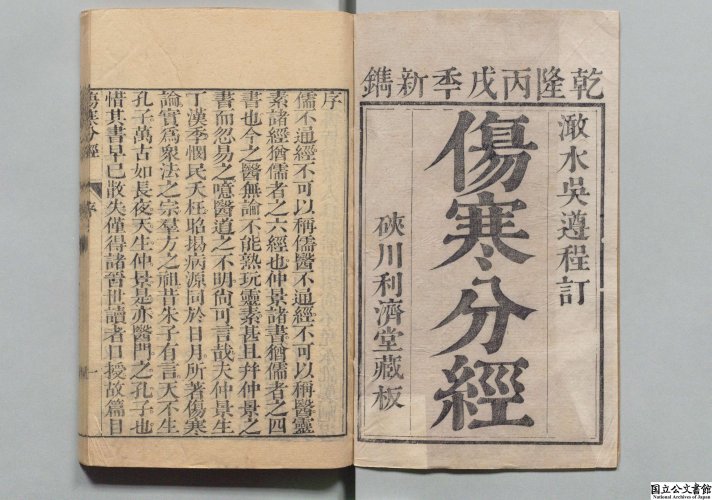 乾隆丙戌季新鐫
澉水吳遵程訂
傷寒分經
硤川利濟堂藏板
序
儒不通經不可以稱儒醫不通經不可以稱醫靈
素諸經猶儒者之六經也仲景諸書猶儒者之四
書也今之醫無論不能熟玩靈素甚且幷仲景之
書而忽易之噫醫道之不明尙可言哉夫仲景生
丁漢季憫民夭枉昭揭病源同於日月所著傷寒
論實爲衆法之宗羣方之祖昔朱子有言天不生
孔子萬古如長夜天生仲景是亦醫門之孔子也
惜其書早已散失僅得諸晉世讀者口授故篇目
傷寒分經
序
一
国立公文書館
National Archives of Japan